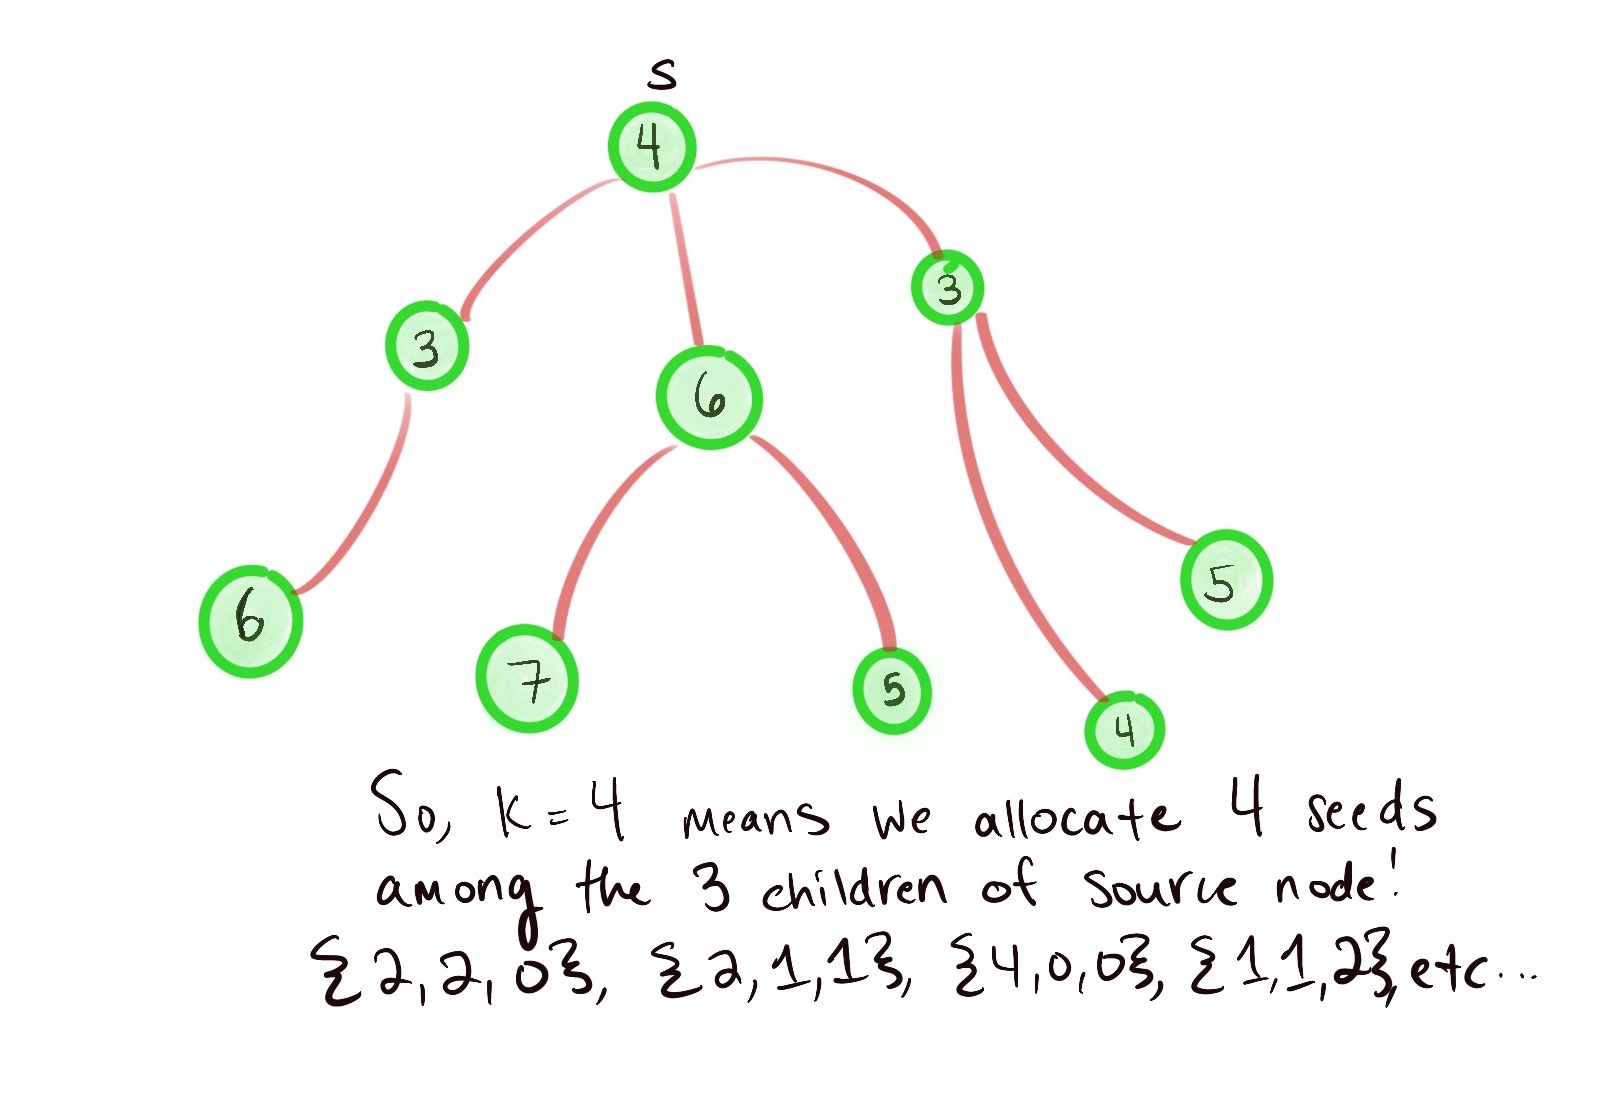 S
4
3
3
6
6
7
5
4
5
So, k = 4 means we allocate 4 seeds
among the 3 children of source node!
{2,2,0}, {2,1,1}, {4,0,0}, {1,1,2}, etc...